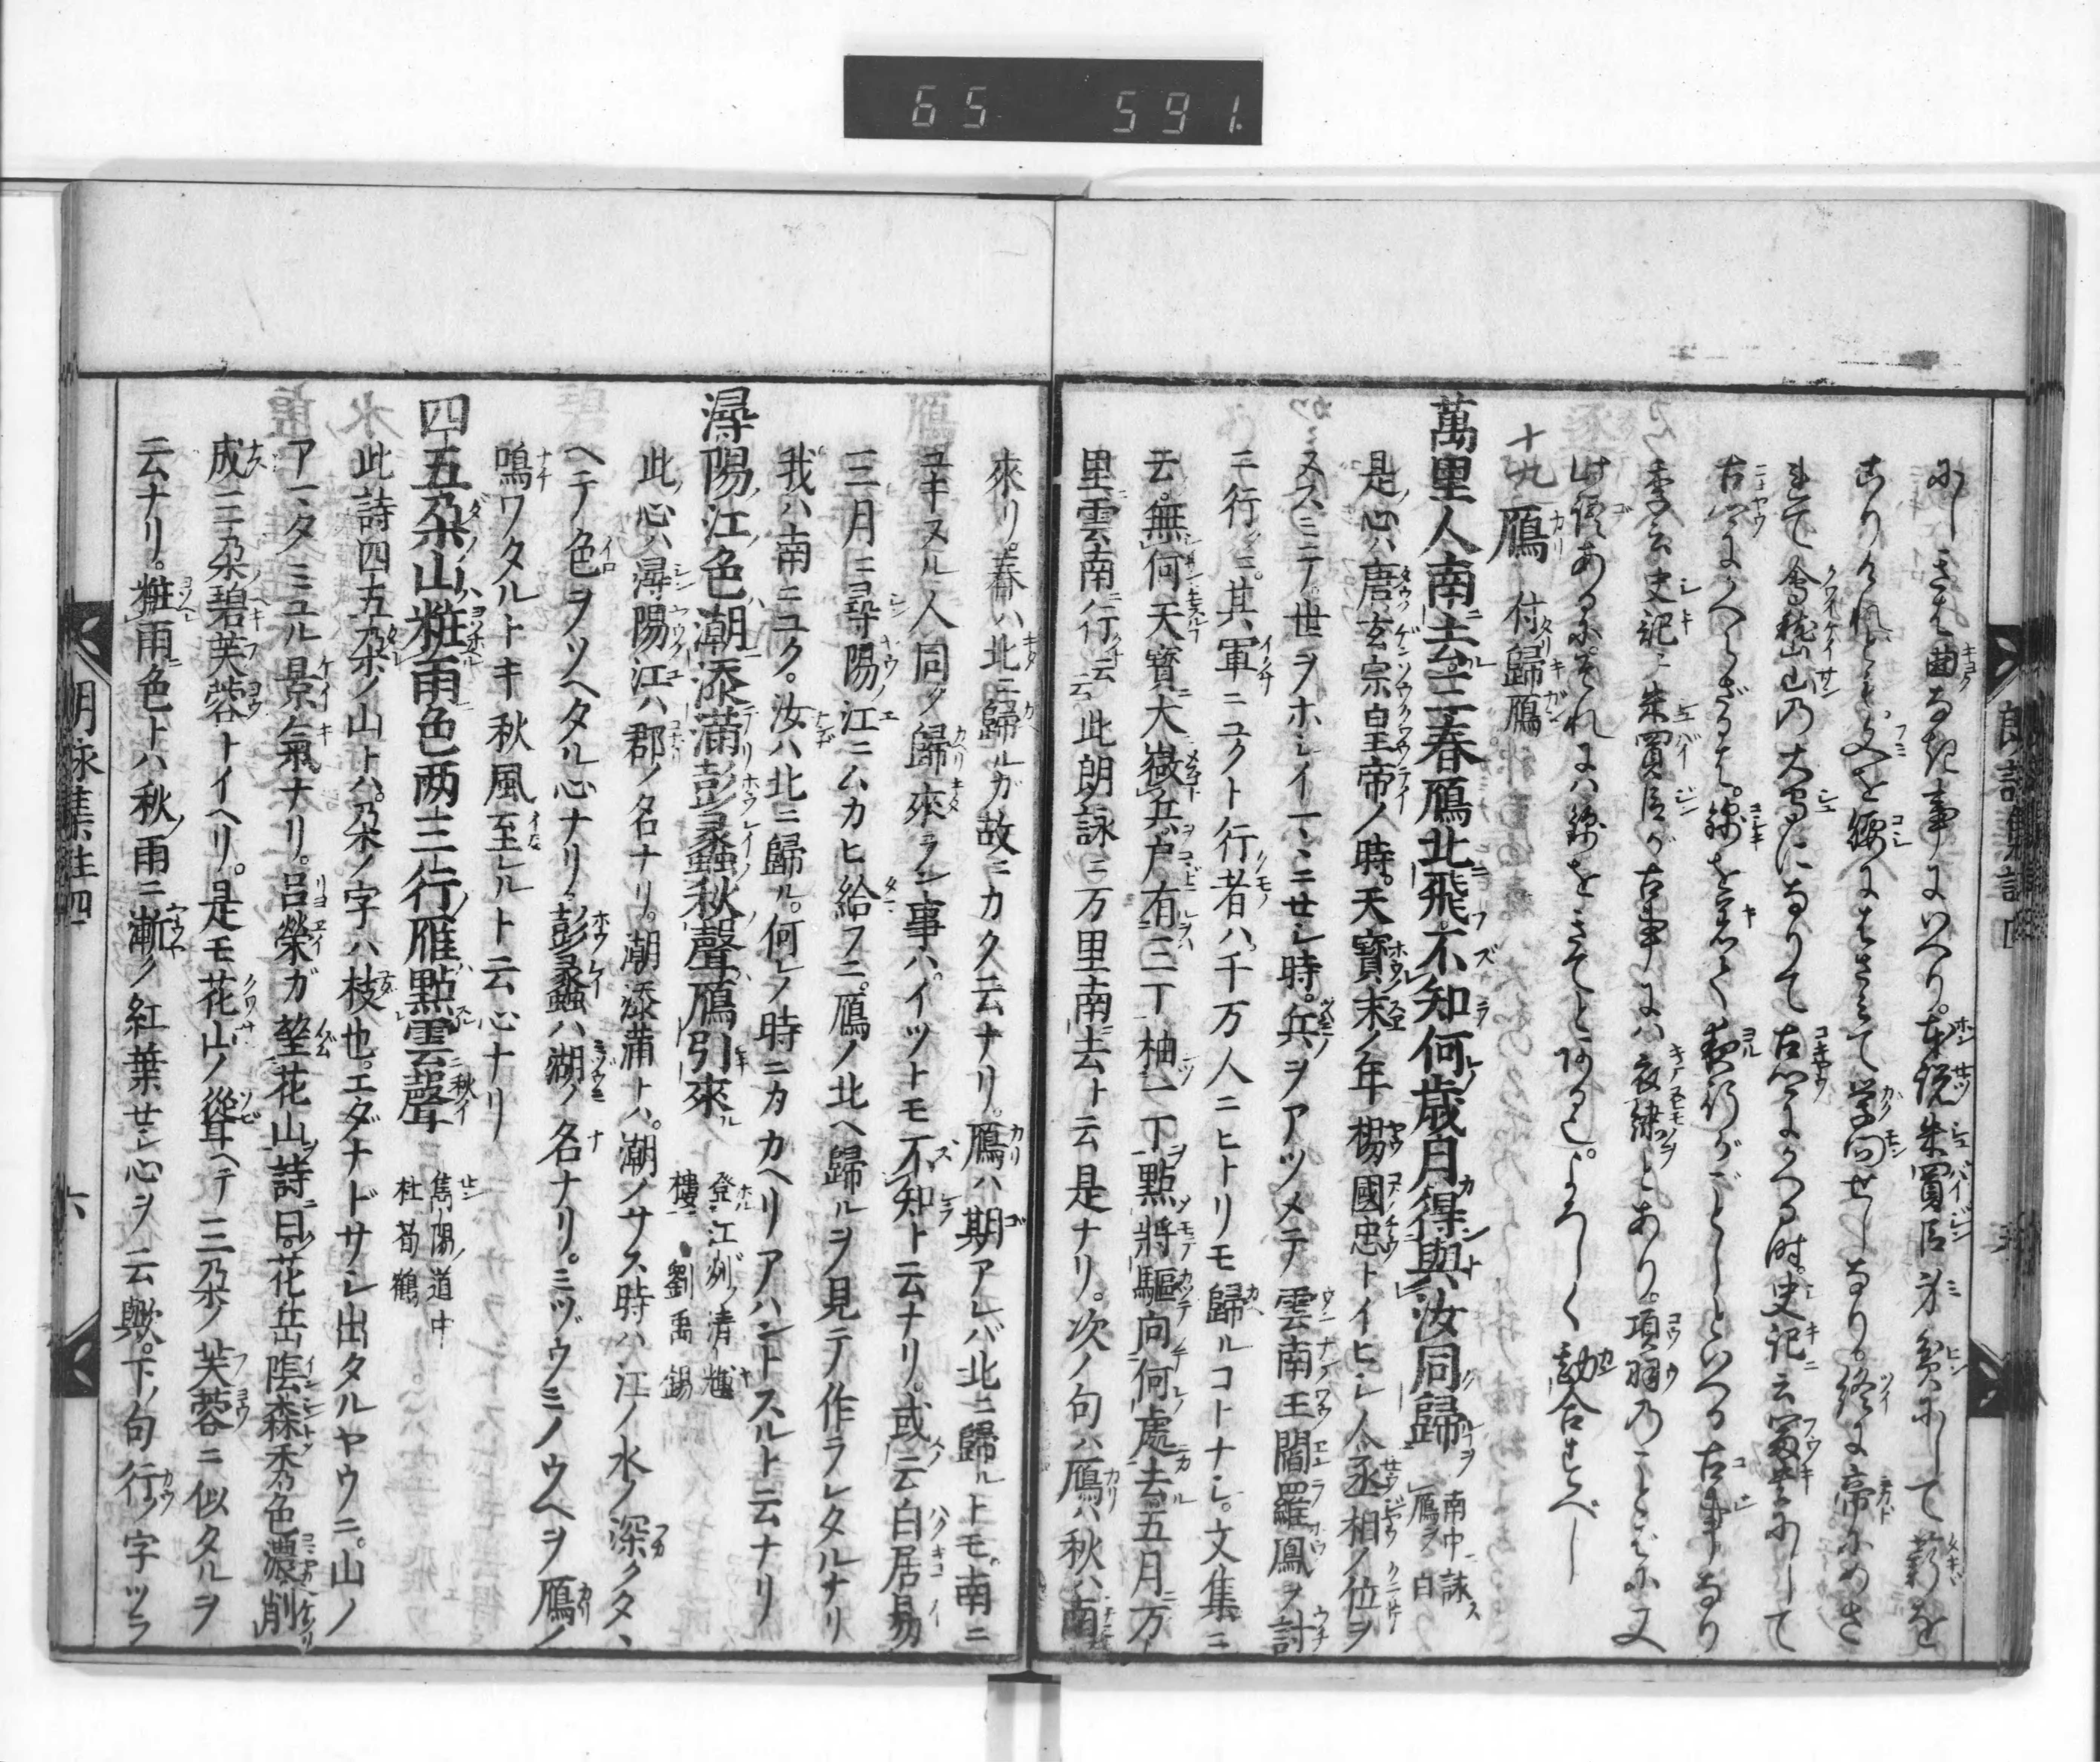 65 591.
にしきは曲なき事にいへり。本説朱買臣身貧にして薪を
こりけれども。文を腰にはさみて学問せしなり。終に帝にめさ
れて會稽山の大守になりて古郷にかへる時。史記ニ云冨貴にして
古郷にかへらざるは。錦を着て夜行がごとしといへる古事なり
季云史記ニ朱買臣が古事には衣繡とあり。項羽のことばに又
此語あるにそれには錦をきてとある 勘合すべし
十九 鴈 付歸鴈
萬里人南去三春鴈北飛不知何歳月得與汝同歸 南中詠鴈 白
是心ハ唐玄宗皇帝ノ時。天寶ノ末ノ年楊國忠トイヒシ人丞相ノ位ヲ
ヌスミテ。世ヲホシイマヽニセシ時。兵ヲアツメテ雲南王閣羅鳳ヲ討
ニ行シニ。其軍ニユクト行者ハ。千万人ニヒトリモ歸ルコトナシ。文集ニ
云。無何天寶大徴兵。戸有三丁抽一丁點將驅向何處去五月万
里雲南行云云此朗詠ニ万里南ニ去ト云是ナリ。次ノ句ハ鴈ハ秋ハ南
來リ。春ハ北ニ歸ルガ故ニカク云ナリ。鴈ハ期アレバ北ニ歸ルトモ。南ニ
ユキヌル人同ク歸來ラン事ハ。イツトモ不知ト云ナリ。或云白居易
三月ニ尋陽江ニムカヒ給フニ。鴈ノ北ヘ歸ルヲ見テ作ラレタルナリ
我ハ南ニユク。汝ハ北ニ歸ル。何レノ時ニカカヘリアハントスルト云ナリ
潯陽江色潮添滿彭蠡秋聲鴈引來 登江州清 樓 劉禹錫
此心ハ潯陽江ハ郡ノ名ナリ。潮添滿トハ。潮ノサス時ハ江ノ水ノ深クタ丶
ヘテ色ヲソヘタル心ナリ。彭蠡ハ湖ノ名ナリ。ミヅウミノウヘヲ鴈ノ
鳴ワタルトキ秋風至レルト云心ナリ
四五朶山粧雨色両三行雁點雲聲 雋陽道中 杜荀鶴
此詩四五朶ノ山トハ。朶ノ字ハ枝也。エダナドサシ出タルヤウニ。山ノ
アマタミユル景氣ナリ。呂榮ガ華山詩曰。花岳陰森秀色濃削
成三朶碧芙蓉トイヘリ。是モ花山ノ聳ヘテ三朶ノ芙蓉ニ似タルヲ
云ナリ。粧雨色トハ秋ノ雨ニ漸ク紅葉セシ心ヲ云歟。下ノ句行ノ字ツラ
朗詠集註四 六